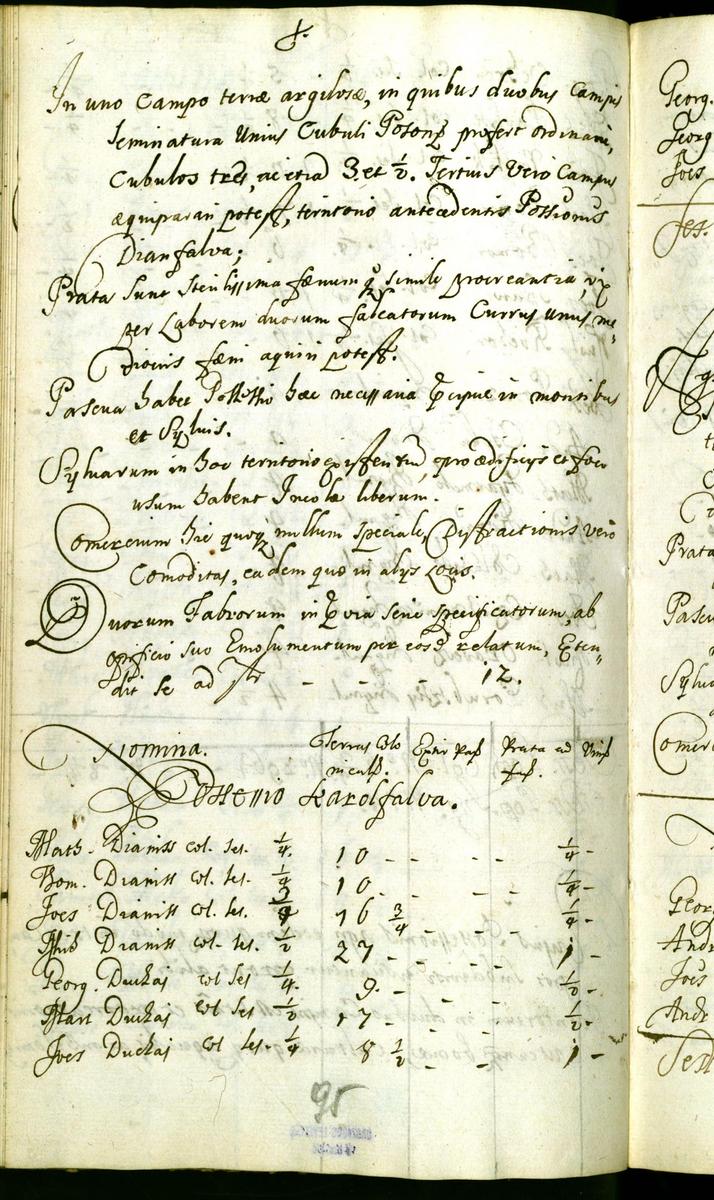 In uno Campo terræ argilosæ, in quibus duobus Campis
seminatura Unius Cubuli Poson: profert ordinarie,
Cubulos tres, ac etiã 3 et 1/2. Tertius Vero Campus
æquiparari potest, territorio antecedentis Possionis
Dianfalva;
Prata Sunt sterilissima fænum q simile procreantia, vix
per Laborem duorum falcatorum Currus Unus me„
diocris fæni aquiri potest.
Pascua habet Possessio hæc necessaria in montibus
et Sylvis.
Sylvarum in hoc territorio existentiũ, pro ædificijs et foco
usum habent Incolæ liberum.
Comercium hic quoq nullum speciale, Distractionis vero
Comoditas, eadem quæ in alijs Locis.
Quorum Fabrorum in via serie specificatorum, ab
opificio suo Emolumentum per eosd relatum, Exten„
dit se ad f - - - - 12.
Nomina. Terras Colo Extir Pas Prata ad Vineas
nicals. fal.
Possessio Karolfalva.
Math. Dianiss col. ses. 1/4. 10 - - - - 1/4 -
Tom. Dianiss col. ses. 1/4 10 - - - - 1/4 -
Joes Dianiss col. ses. 16 3/4 - - - 1/4 -
Mih Dianiss col. ses. 1/2 27 - - - - 1 -
Georg. Duckaj col ses 1/4. 9. - - - - 1/2 -
Mart Duckaj col ses 1/2 17 - - - - 1/2 -
Joes Duckaj col ses. 1/4 8 1/2 - - - 1 -
95
Georg.
Georg
Joes
Ses.
Prata
Pascu
Sylva
Comer
Georg
Andr
Joes
Andr